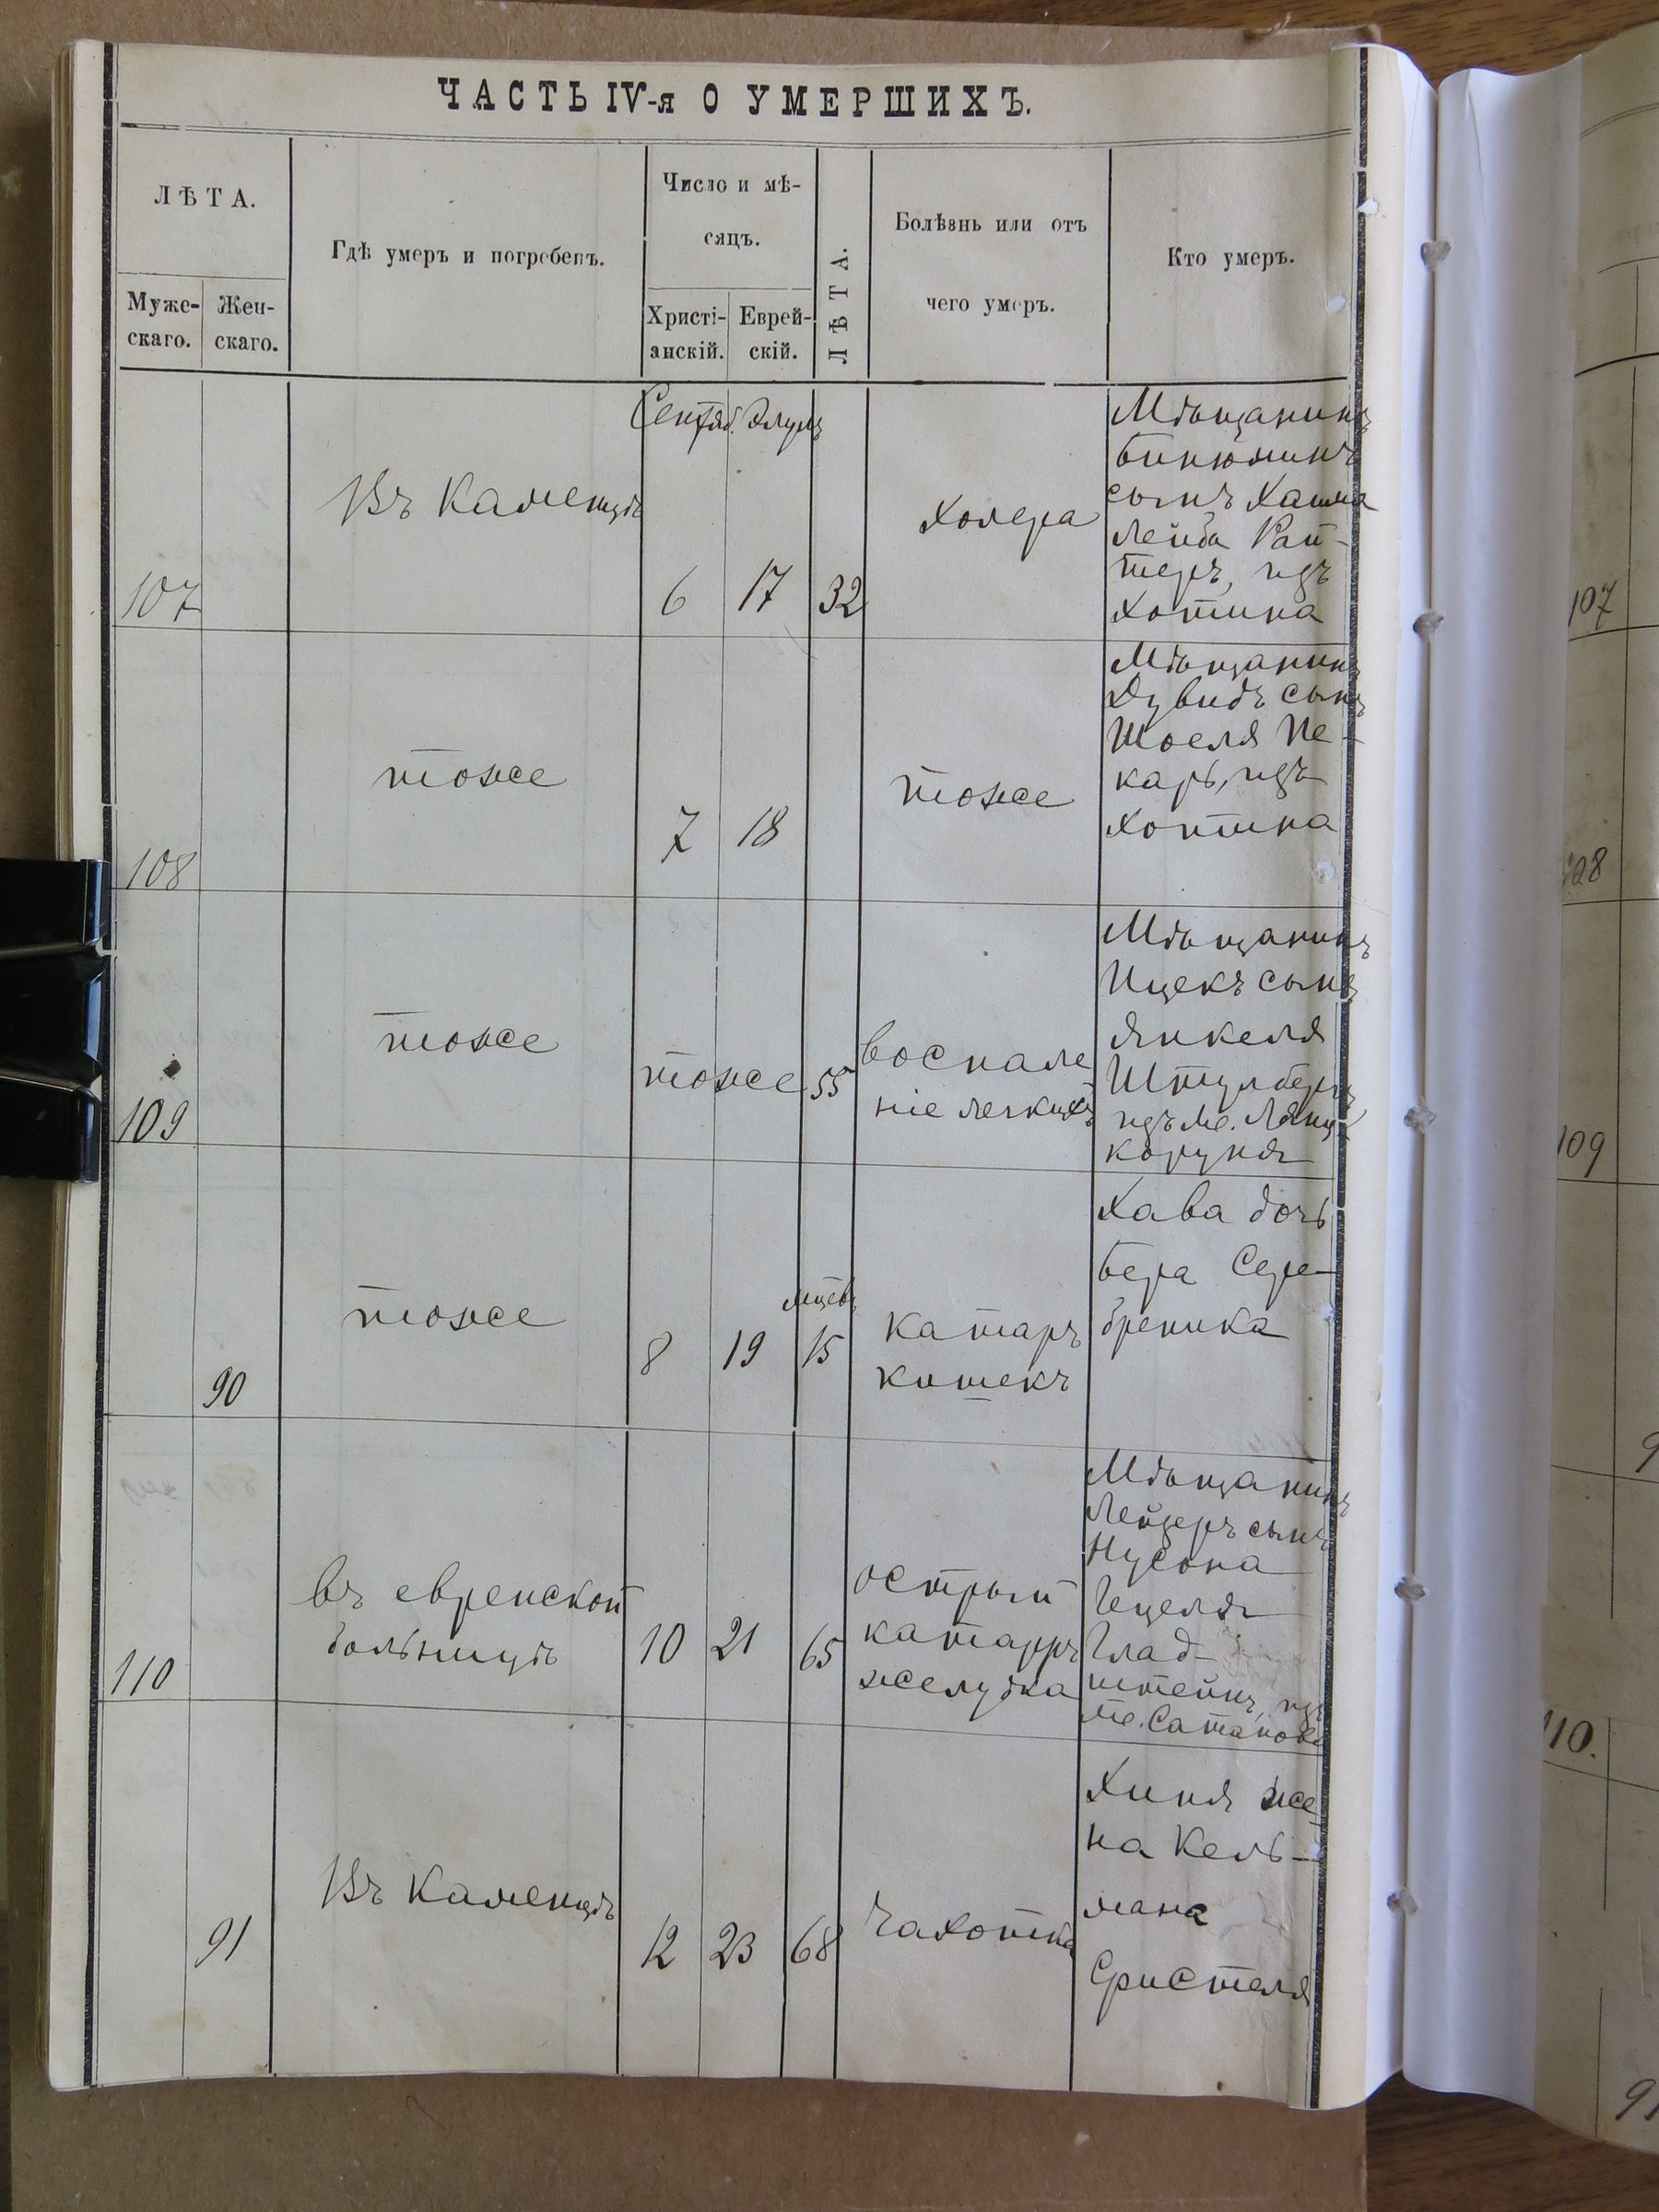 ЧАСТЬ IV-я О УМЕРШИХЪ.
ЛѢТА.
Муже-
скаго.
Жен-
скаго.
Гдѣ умеръ и погребенъ.
Число и мѣ-
сяцъ.
Христі-
анскій.
Еврей-
скій.
ЛѢТА.
Болѣзнь или отъ
чего умеръ.
Кто умеръ.
Сентяб. Элулъ
107
Въ Каменцѣ
6
17
32
Холера
Мѣщанинъ
Бинюминъ
сынъ Хаима
Лейба Рай-
теръ, изъ
Хотина
107
108
тоже
7
18
тоже
Мѣщанинъ
Дувидъ сынъ
Шоеля Пе-
карь, изъ
Хотина
108
109
тоже
тоже
55
воспале
ніе легкихъ
Мѣщанинъ
Ицекъ сынъ
Янкеля
изъ м. Лянц
коруня
109
90
тоже
8
19
мцевъ
15
катаръ
кишекъ
Хава дочь
Бера Сере-
бреника
110
въ еврейской
больницѣ
10
21
65
острый
катарръ
желудка
Мѣщанинъ
Лейзеръ сынъ
Нусона
Ицеля
Глад-
штейнъ, изъ
м. Сатанова
110.
91
Въ Каменцѣ
12
23
68
Чахотка
Хиня же
на Кель-
мана
91